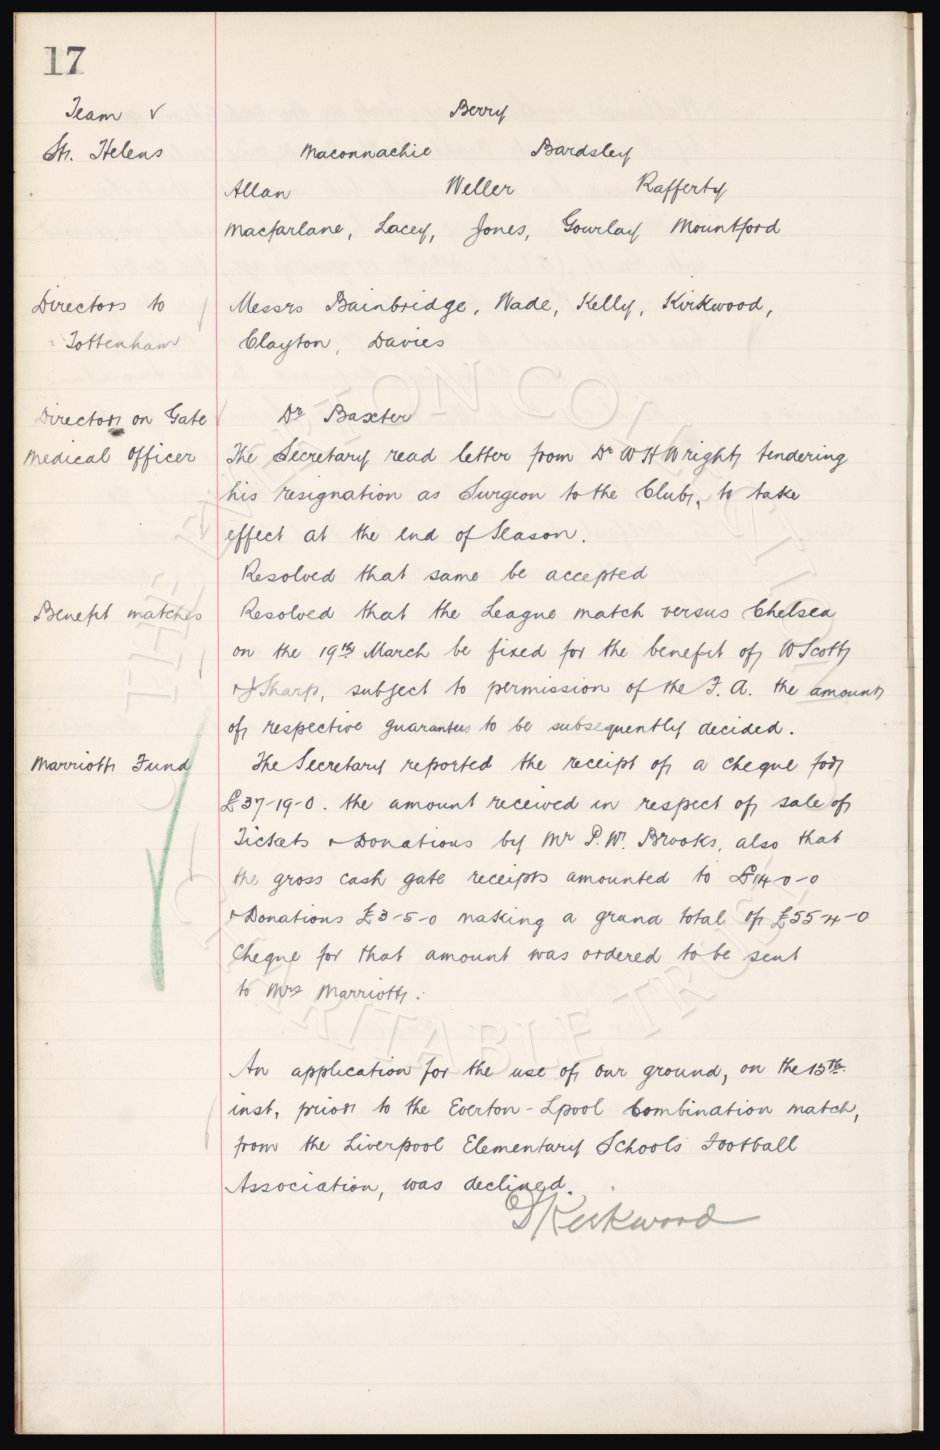 17
Team v Berry
St. Helens Maconnachie Bardsley
Allan Weller Rafferty
Macfarlane, Lacey, Jones, Gourlay Mountford
Directors to Messrs Bainbridge, Wade, Kelly, Kirkwood,
Tottenham Clayton, Davies
Directors on Gate Dr Baxter
Medical Officer The Secretary read letter from Dr W H Wright, tendering
his resignation as Surgeon to the Club, to take
effect at the end of Season.
Resolved that same be accepted
Benefit matches Resolved that the League match versus Chelsea
on the 19th March be fixed for the benefit of W Scott
& J Sharp, subject to permission of the F. A. the amount
of respective guarantees to be subsequently decided.
Marriott Fund The Secretary reported the receipt of a cheque for
£37-19-0. the amount received in respect of sale of
Tickets & Donations by Mr P. W. Brooks, also that
the gross cash gate receipts amounted to £14-0-0
& Donations £3-5-0 making a grand total of £55-4-0
Cheque for that amount was ordered to be sent
to Mrs Marriott.
An application for the use of our ground, on the 15th
inst, prior to the Everton-Lpool Combination match,
from the Liverpool Elementary Schools Football
Association, was declined.
D Kirkwood
THE EVERTON COLLECTION
CHARITABLE TRUST